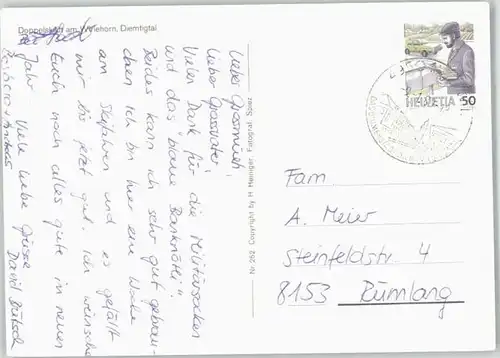 Doppelskilift am Wiriehorn, Diemtigtal
Liebe Grossmueti,
lieber Grossvater!
Vielen Dank für die Militärsocken
und das "blaue Banknötli"
Beides kann ich sehr gut gebrau-
chen. Ich bin hier eine Woche
am Skifahren und es gefällt
mir bis jetzt gut. Ich wünsche
Euch noch alles gute im neuen
Jahr. Viele liebe Grüsse
David
Nr. 262 Copyright by H. Heiniger, Fotograf, Spiez
HELVETIA 50
Fam.
A. Meier
Steinfeldstr. 4
8153 Rümlang